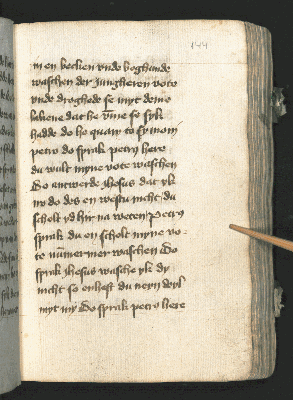 144
in en becken vnde beghunde
waschen der Jungheren vote
vnde droghede se myt deme
lakene dat he vmme so syk
hadde do he quam to symon
petro do sprak petrus here
du wult myne vote waschen
Do antwerde Jhesus dat yk
nv do des en westu nicht du
scholt yd hir na weten Petrus
sprak du en scholt myne vo-
te nummer mer waschen Do
sprak Jhesus wasche yk dy
nicht so enhest du neyn deyl
myt my Do sprak petrus here